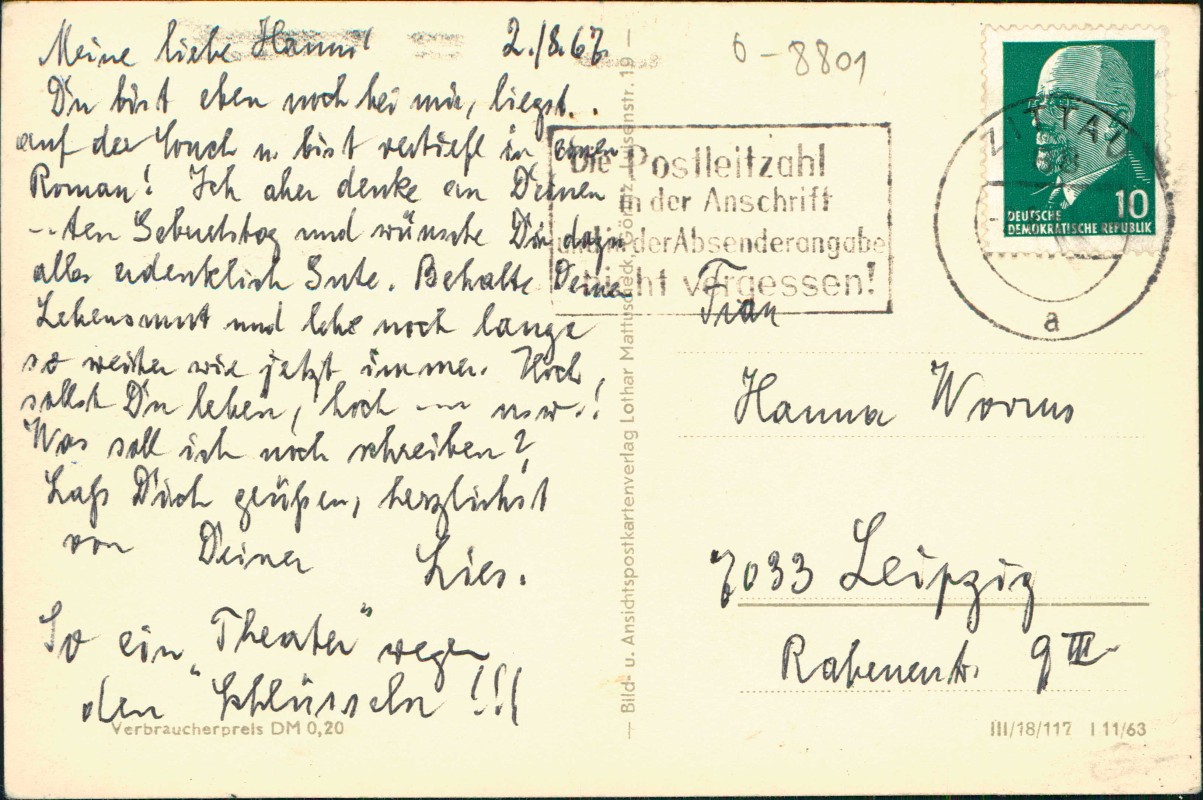 Meine liebe Hanns! 2./8.67.
Du bist eben noch bei mir, liegst
auf der Couch u. bist vertieft in einen
Roman! Ich aber denke an Deinen
-..ten Geburtstag und wünsche Dir dazu
alles erdenklich Gute. Behalte Deinen
Lebensmut und lebe noch lange
so weiter wie jetzt immer. Hoch
sollst Du leben, hoch --- usw.!
Was soll ich noch schreiben?
Laß Dich grüßen, herzlichst
von Deiner Lies.
So ein „Theater" wegen
den Schlüsseln!!!
Verbraucherpreis DM 0,20
— Bild- u. Ansichtspostkartenverlag Lothar Mattuscheck, Görlitz, Luisenstr. 19 —
6-8801
Die Postleitzahl
in der Anschrift
und in der Absenderangabe
nicht vergessen!
ZITTAU
a
10
DEUTSCHE
DEMOKRATISCHE REPUBLIK
Frau
Hanna Worms
7033 Leipzig
Rabenerstr. 9 III
III/18/117 I 11/63